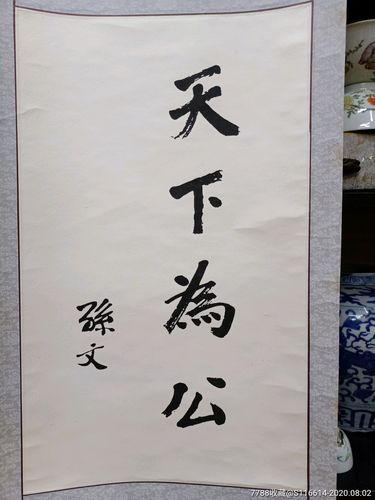 天下為公
孫文
7788收藏@S116614-2020.08.02